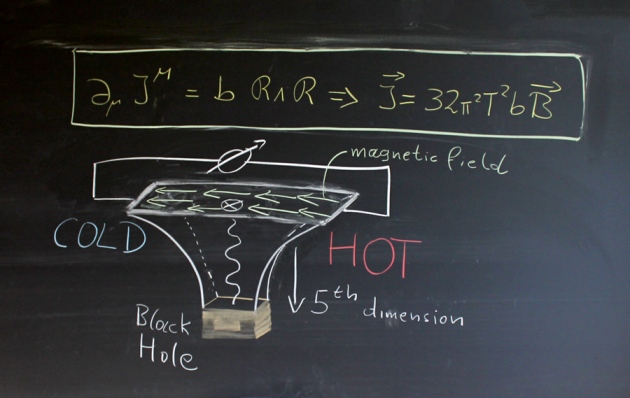 ∂μ J^μ = b R∧R ⇒ J⃗ = 32π²T²bB⃗
magnetic field
COLD
HOT
5th dimension
Black
Hole